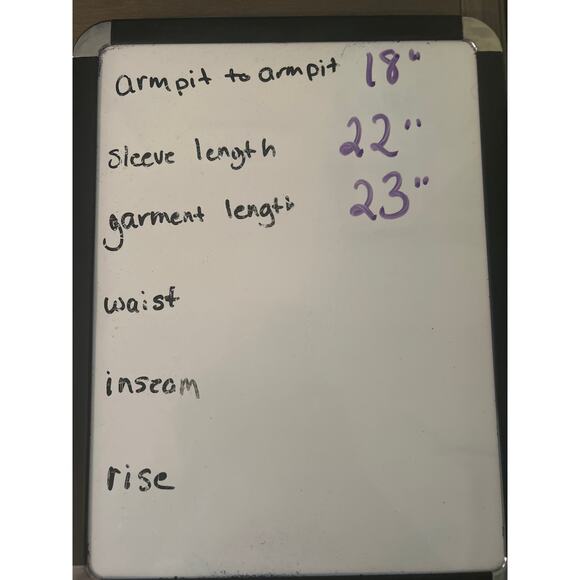 armpit to armpit 18"
sleeve length 22"
garment length 23"
waist
inseam
rise